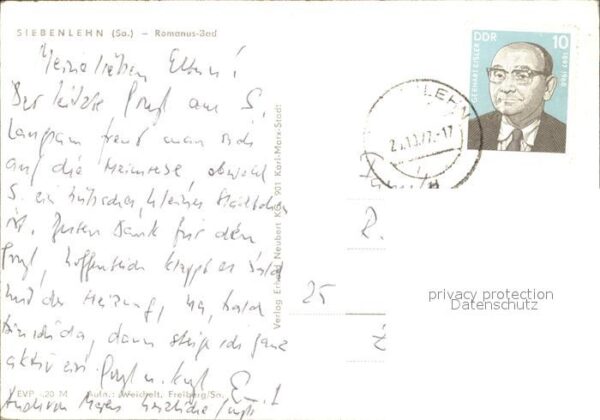 SIEBENLEHN (Sa.) – Romanus-Bad
Meine lieben Eltern!
Der letzte Gruß aus S.
Langsam freut man sich
auf die Heimreise obwohl
S. ein hübsches, kleines Städtchen
ist. Besten Dank für den
Gruß, hoffentlich klappt es bald
mit der Heizung, na, bald
bin ich da, dann steige ich ganz
aktiv ein. Gruß u. Kuß
herzliche Grüße
EVP -,20 M Aufn.: Weichelt, Freiberg/Sa.
Verlag Erhard Neubert KG, 901 Karl-Marx-Stadt
DDR 10
GERHART EISLER 1897-1968
LEHN
77-17
R.
25
privacy protection
Datenschutz